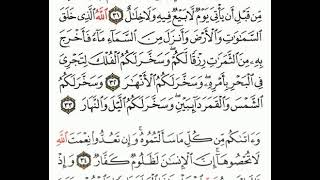 مِّن قَبْلِ أَن يَأْتِىَ يَوْمٌ لَّا بَيْعٌ فِيهِ وَلَا خِلَٰلٌ ٣١ ٱللَّهُ ٱلَّذِى خَلَقَ
ٱلسَّمَٰوَٰتِ وَٱلْأَرْضَ وَأَنزَلَ مِنَ ٱلسَّمَآءِ مَآءً فَأَخْرَجَ
بِهِۦ مِنَ ٱلثَّمَرَٰتِ رِزْقًا لَّكُمْ ۖ وَسَخَّرَ لَكُمُ ٱلْفُلْكَ لِتَجْرِىَ
فِى ٱلْبَحْرِ بِأَمْرِهِۦ ۖ وَسَخَّرَ لَكُمُ ٱلْأَنْهَٰرَ ٣٢ وَسَخَّرَ لَكُمُ
ٱلشَّمْسَ وَٱلْقَمَرَ دَآئِبَيْنِ ۖ وَسَخَّرَ لَكُمُ ٱلَّيْلَ وَٱلنَّهَارَ
٣٣
وَءَاتَىٰكُم مِّن كُلِّ مَا سَأَلْتُمُوهُ ۚ وَإِن تَعُدُّوا۟ نِعْمَتَ ٱللَّهِ
لَا تُحْصُوهَآ ۗ إِنَّ ٱلْإِنسَٰنَ لَظَلُومٌ كَفَّارٌ ٣٤ وَإِذْ